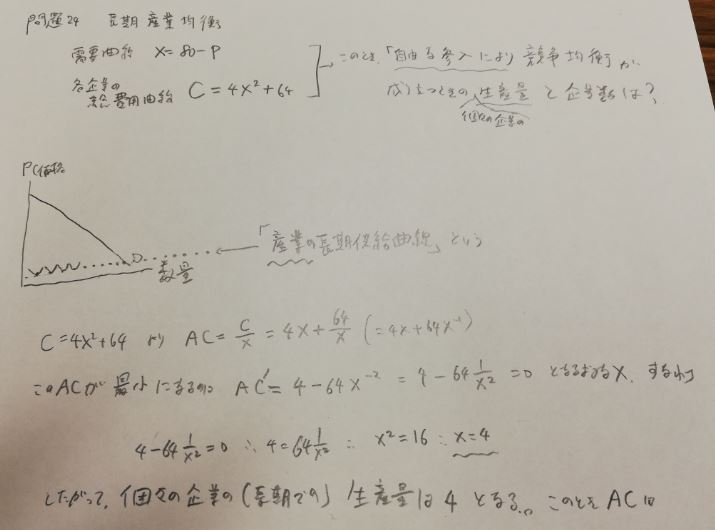 問題24 長期産業均衡
需要曲線 X=80-P
各企業の
総費用曲線 C=4X²+64
このとき、「自由な参入により競争均衡が
成り立つときの、生産量と企業数は?
個々の企業の
P(価格)
D
数量
「産業の長期供給曲線」という
C=4X²+64 より AC=C/X=4X+64/X (=4X+64X⁻¹)
このACが最小になるのは AC'=4-64X⁻²=4-64 1/X²=0 となるようなX、すなわち
4-64 1/X²=0 ∴4=64 1/X² ∴ X²=16 ∴X=4
したがって、個々の企業の(長期での)生産量は4となる。このときACは